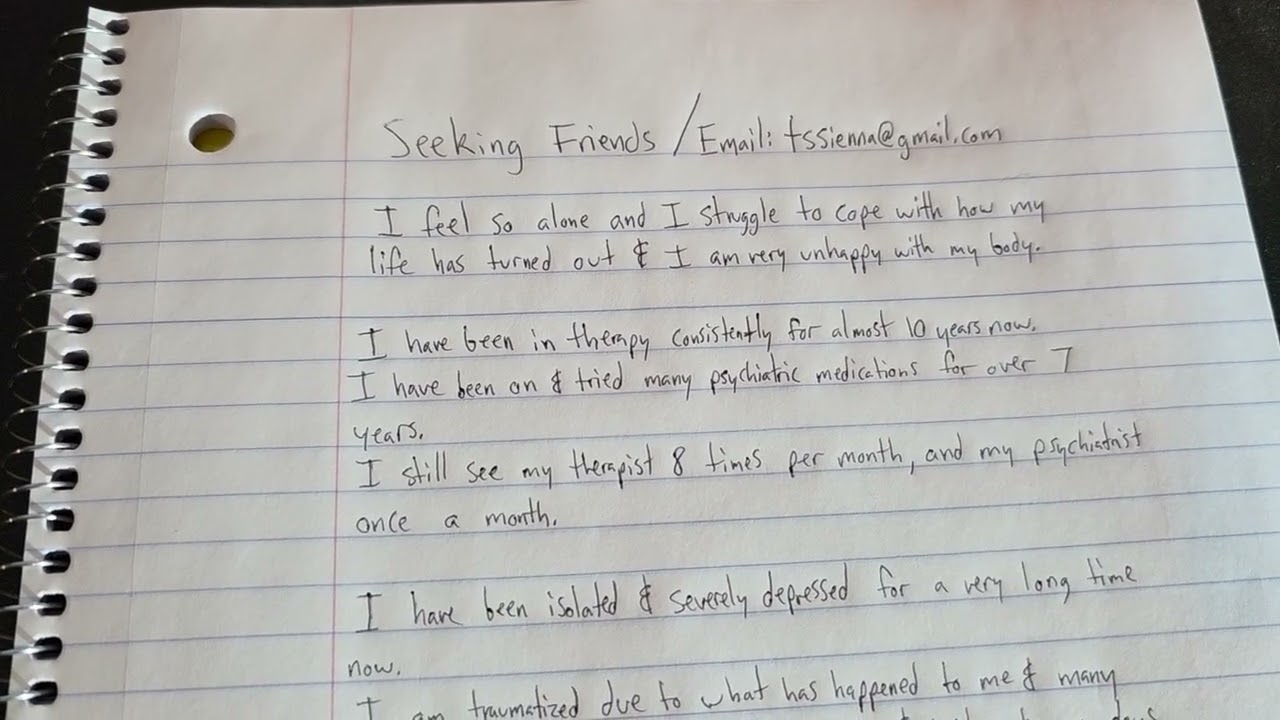 Seeking Friends / Email: tssienna@gmail.com
I feel so alone and I struggle to cope with how my
life has turned out & I am very unhappy with my body.
I have been in therapy consistently for almost 10 years now.
I have been on & tried many psychiatric medications for over 7
years.
I still see my therapist 8 times per month, and my psychiatrist
once a month.
I have been isolated & severely depressed for a very long time
now.
I am traumatized due to what has happened to me & many